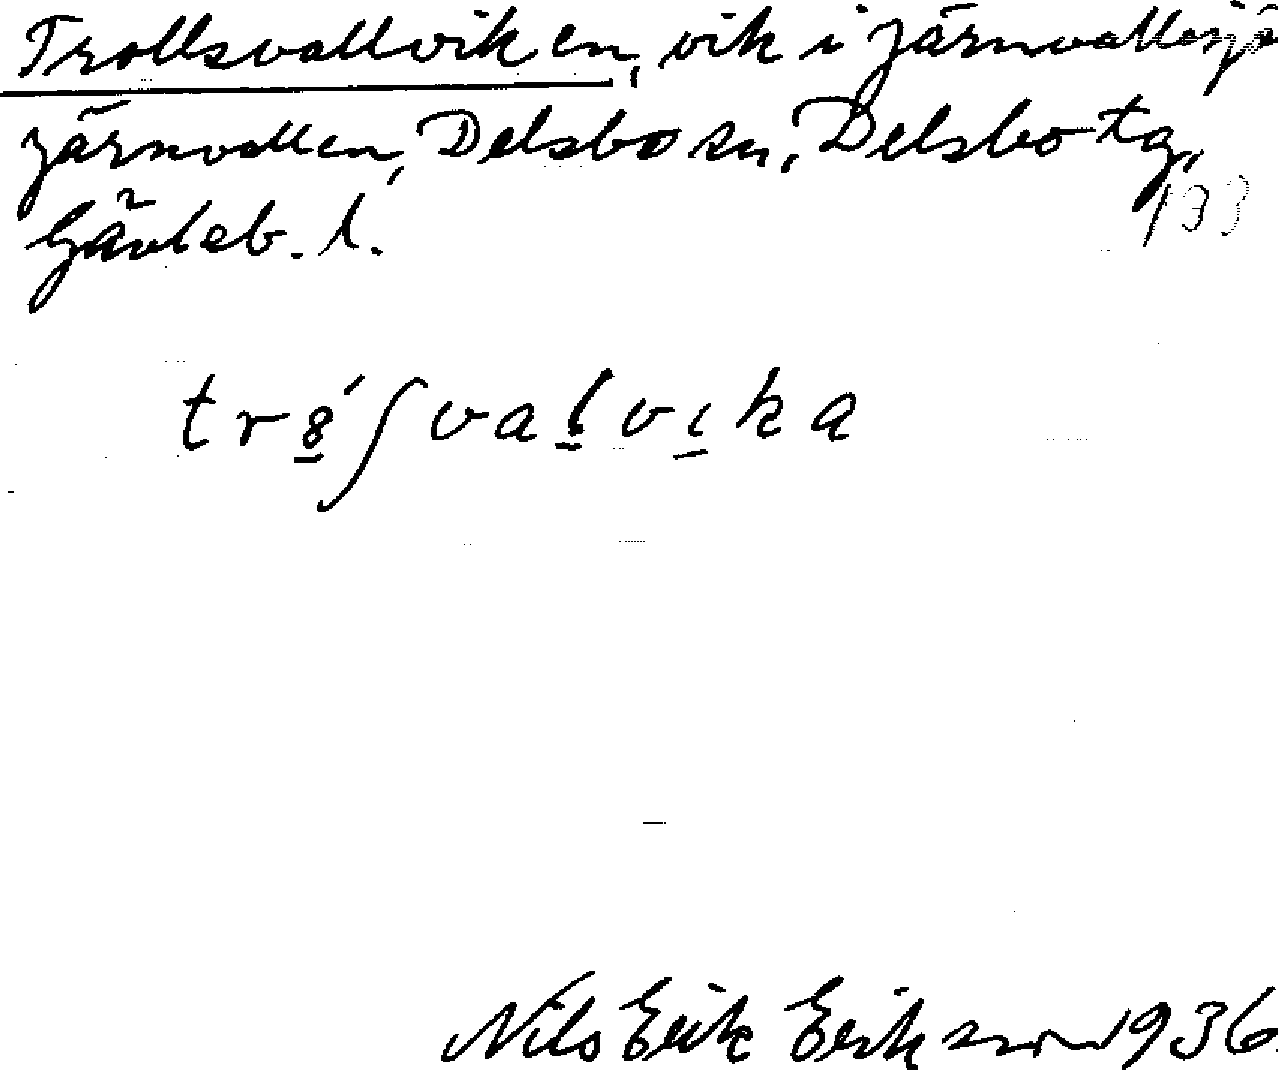 Trollsvallviken, vik i Järnvallesjö
Järnvallen, Delsbo sn, Delsbo tg,
Gävleb. l.
133
tr8́ʃvalvika
Nils Erik Eriksson 1936